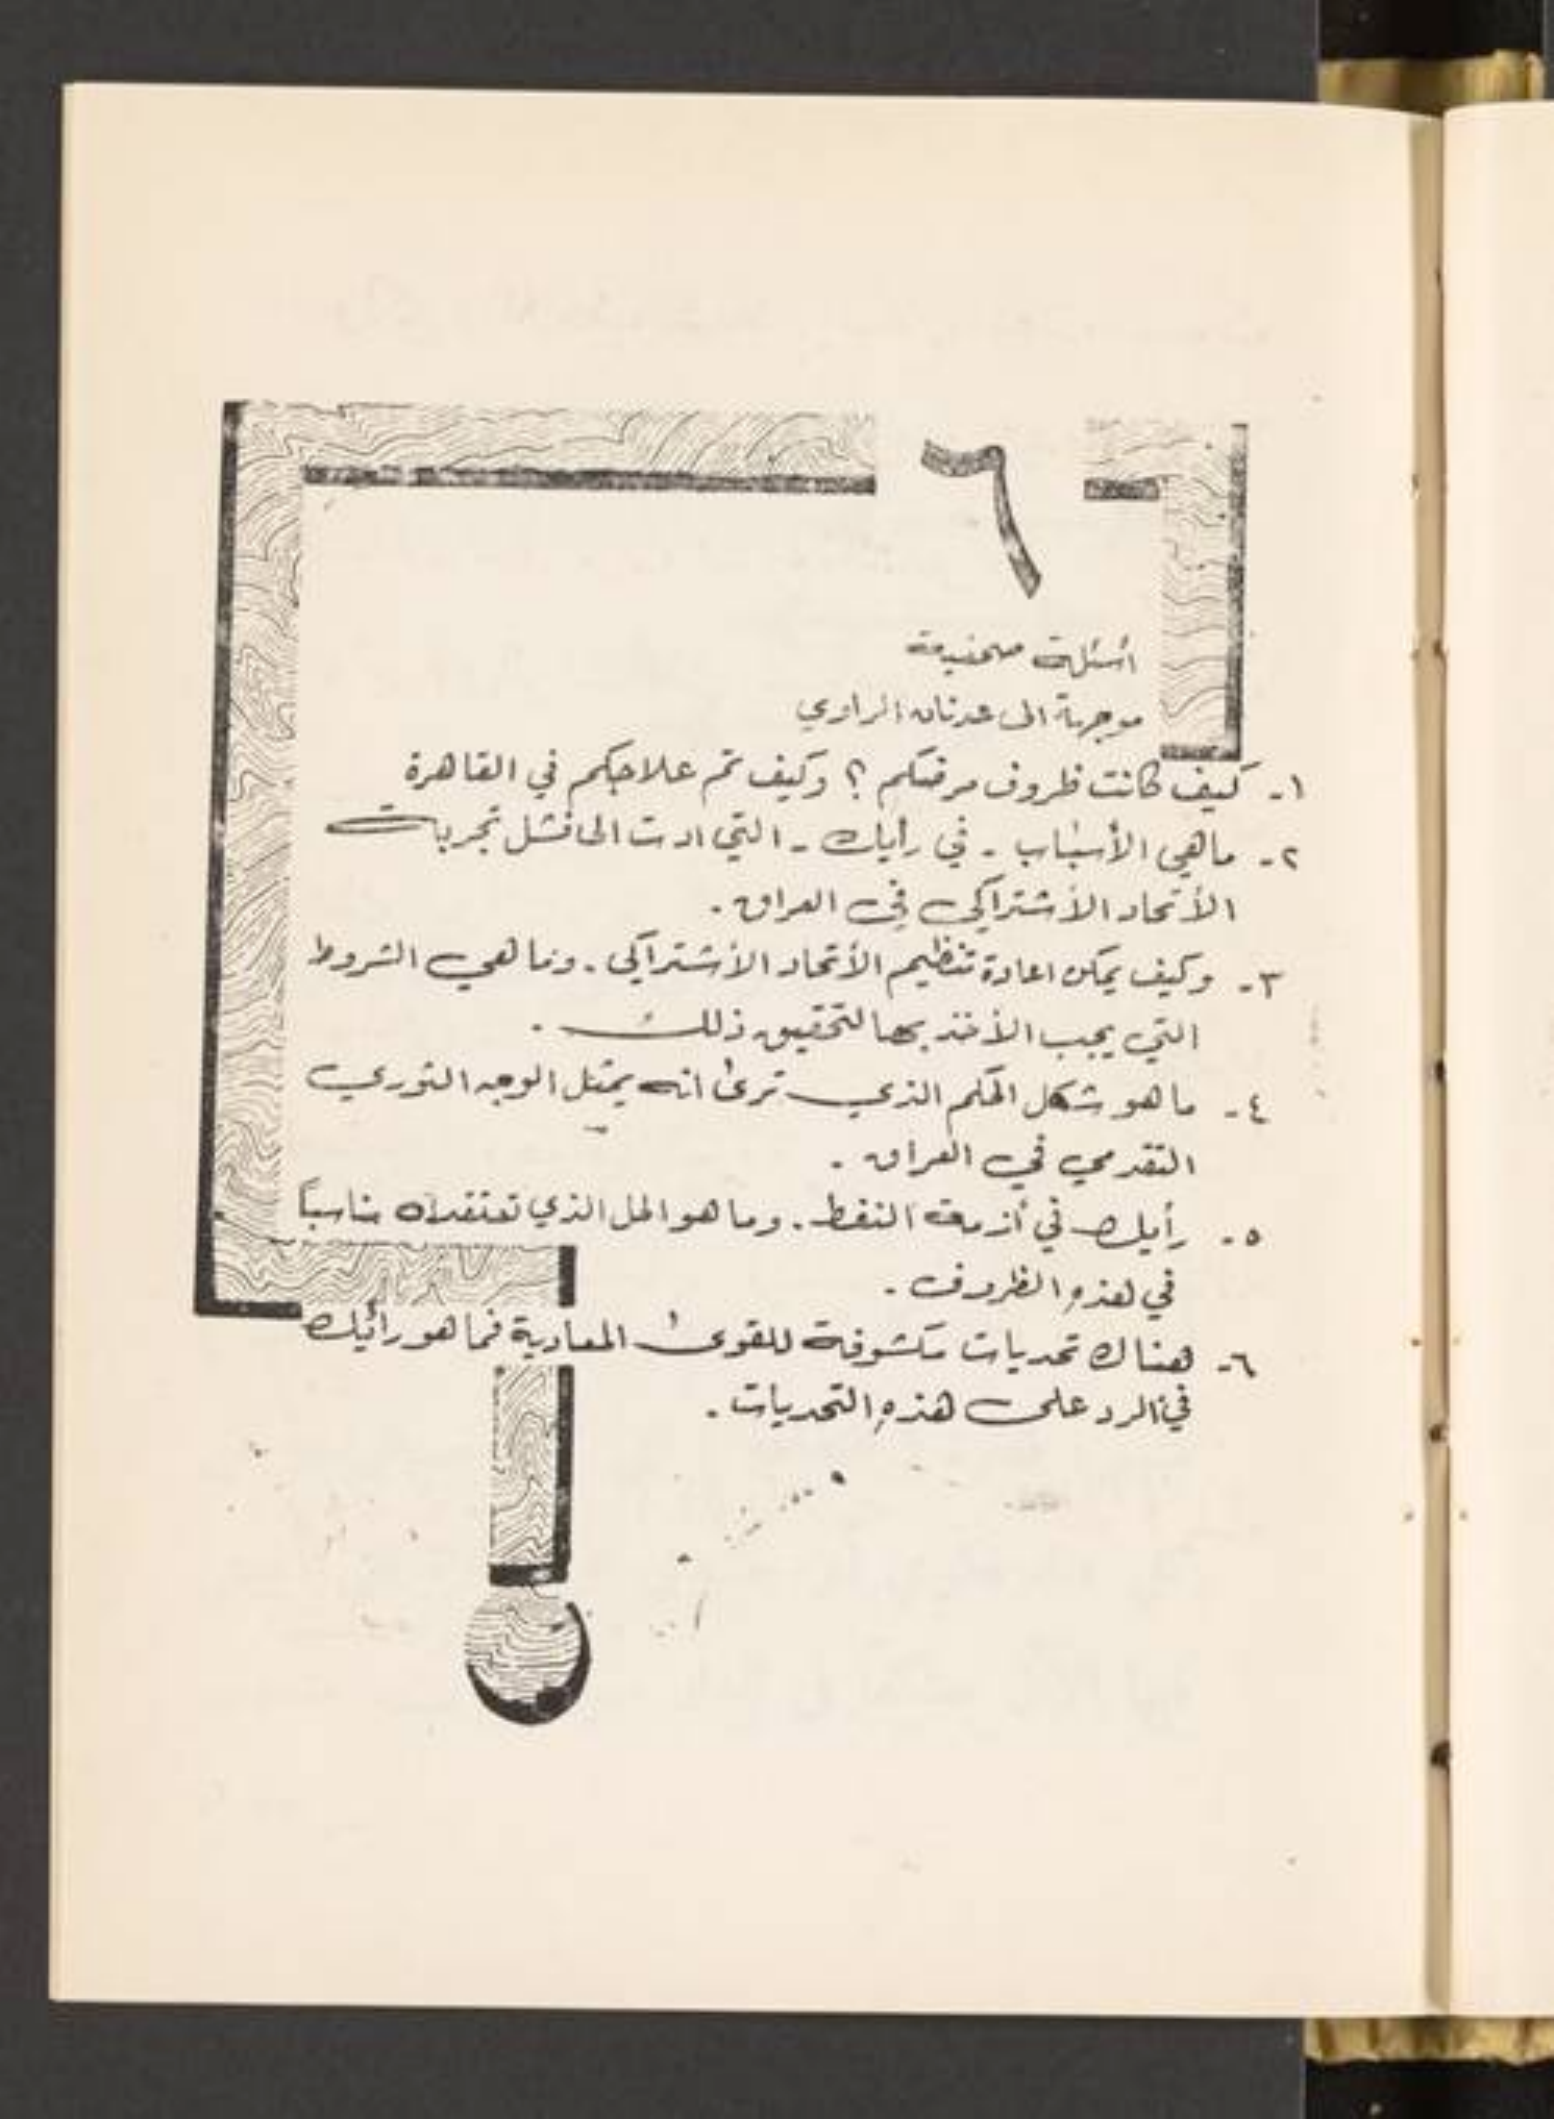 ٦
أسئلة صحفية
موجهة الى عدنان الراوي
١- كيف كانت ظروف مرضكم ؟ وكيف تم علاجكم في القاهرة
٢- ماهي الأسباب - في رأيك - التي ادت الى فشل تجربات
الأتحاد الأشتراكي في العراق .
٣- وكيف يمكن اعادة تنظيم الأتحاد الأشتراكي . وما هي الشروط
التي يجب الأخذ بها لتحقيق ذلك .
٤- ما هو شكل الحكم الذي ترى انه يمثل الوجه الثوري
التقدمي في العراق .
٥- رأيك في أزمة النفط . وما هو الحل الذي تعتقده مناسباً
في هذه الظروف .
٦- هناك تحديات مكشوفة للقوى المعادية فما هو رأيك
في الرد على هذه التحديات .